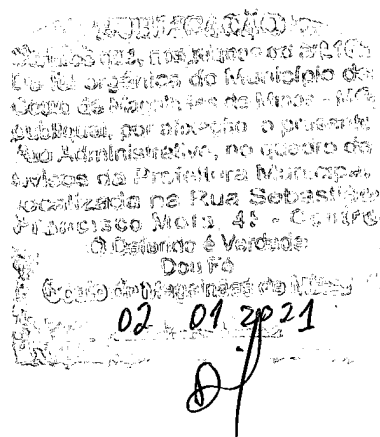 PUBLICAÇÃO
nos termos do art.
Lei Orgânica do Município de
de Magalhães de Minas - MG,
publiquei, por afixação o presente
Ato Administrativo, no quadro de
avisos da Prefeitura Municipal,
localizada na Rua Sebastião
Francisco Mota - Centro
O Referido é Verdade
Dou Fé
de Magalhães de Minas
02 01 2021